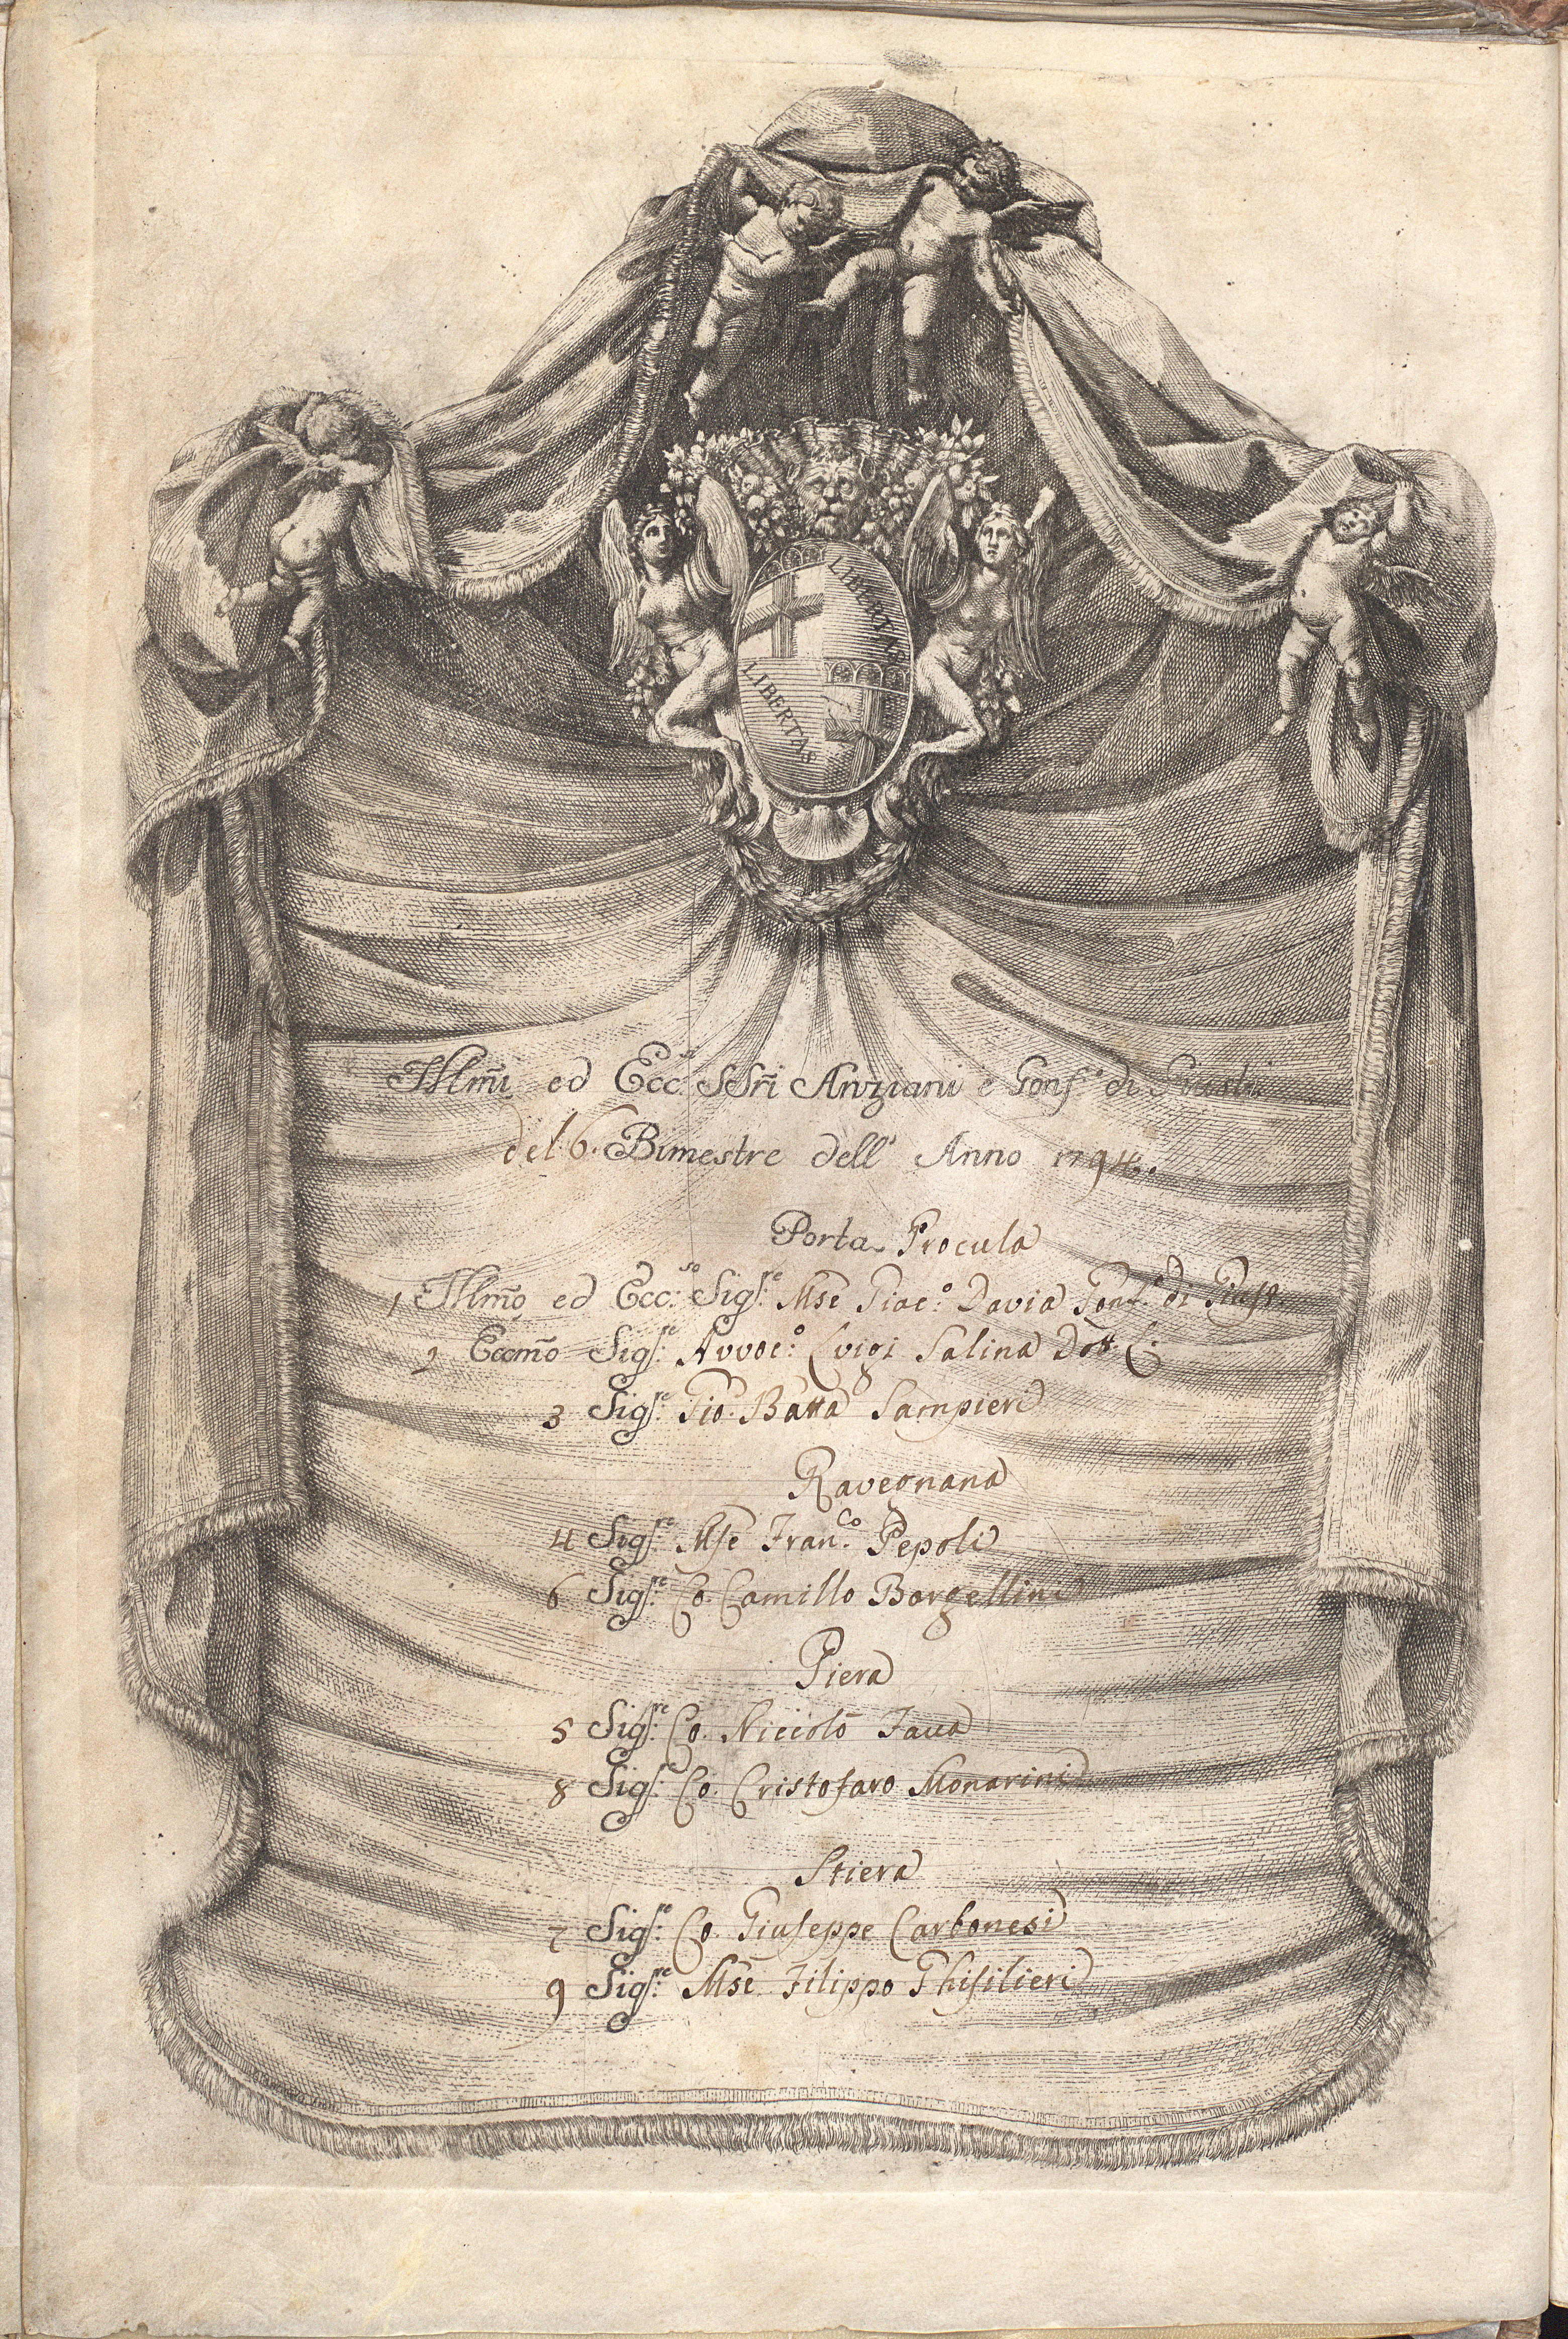 LIBERTAS
LIBERTAS
Illm̃i ed Ecc.si SSri Anziani e Gonf.e di Giusti
del 6. Bimestre dell' Anno 1794.
Porta Procula
1 Illm̃o ed Ecc.so Sig.re Mse Giac.o Davia Gonf.e di Giust.
2 Eccm̃o Sig.re Avvoc.o Luigi Salina Dott. C.
3 Sig.re Gio. Batta Sampieri
Ravegnana
4 Sig.re Mse Fran.co Pepoli
6 Sig.re Co. Camillo Borgellini
Piera
5 Sig.re Co. Niccolò Fava
8 Sig.re Co. Cristofaro Monarini
Stiera
7 Sig.re Co. Giuseppe Carbonesi
9 Sig.re Mse Filippo Ghisilieri